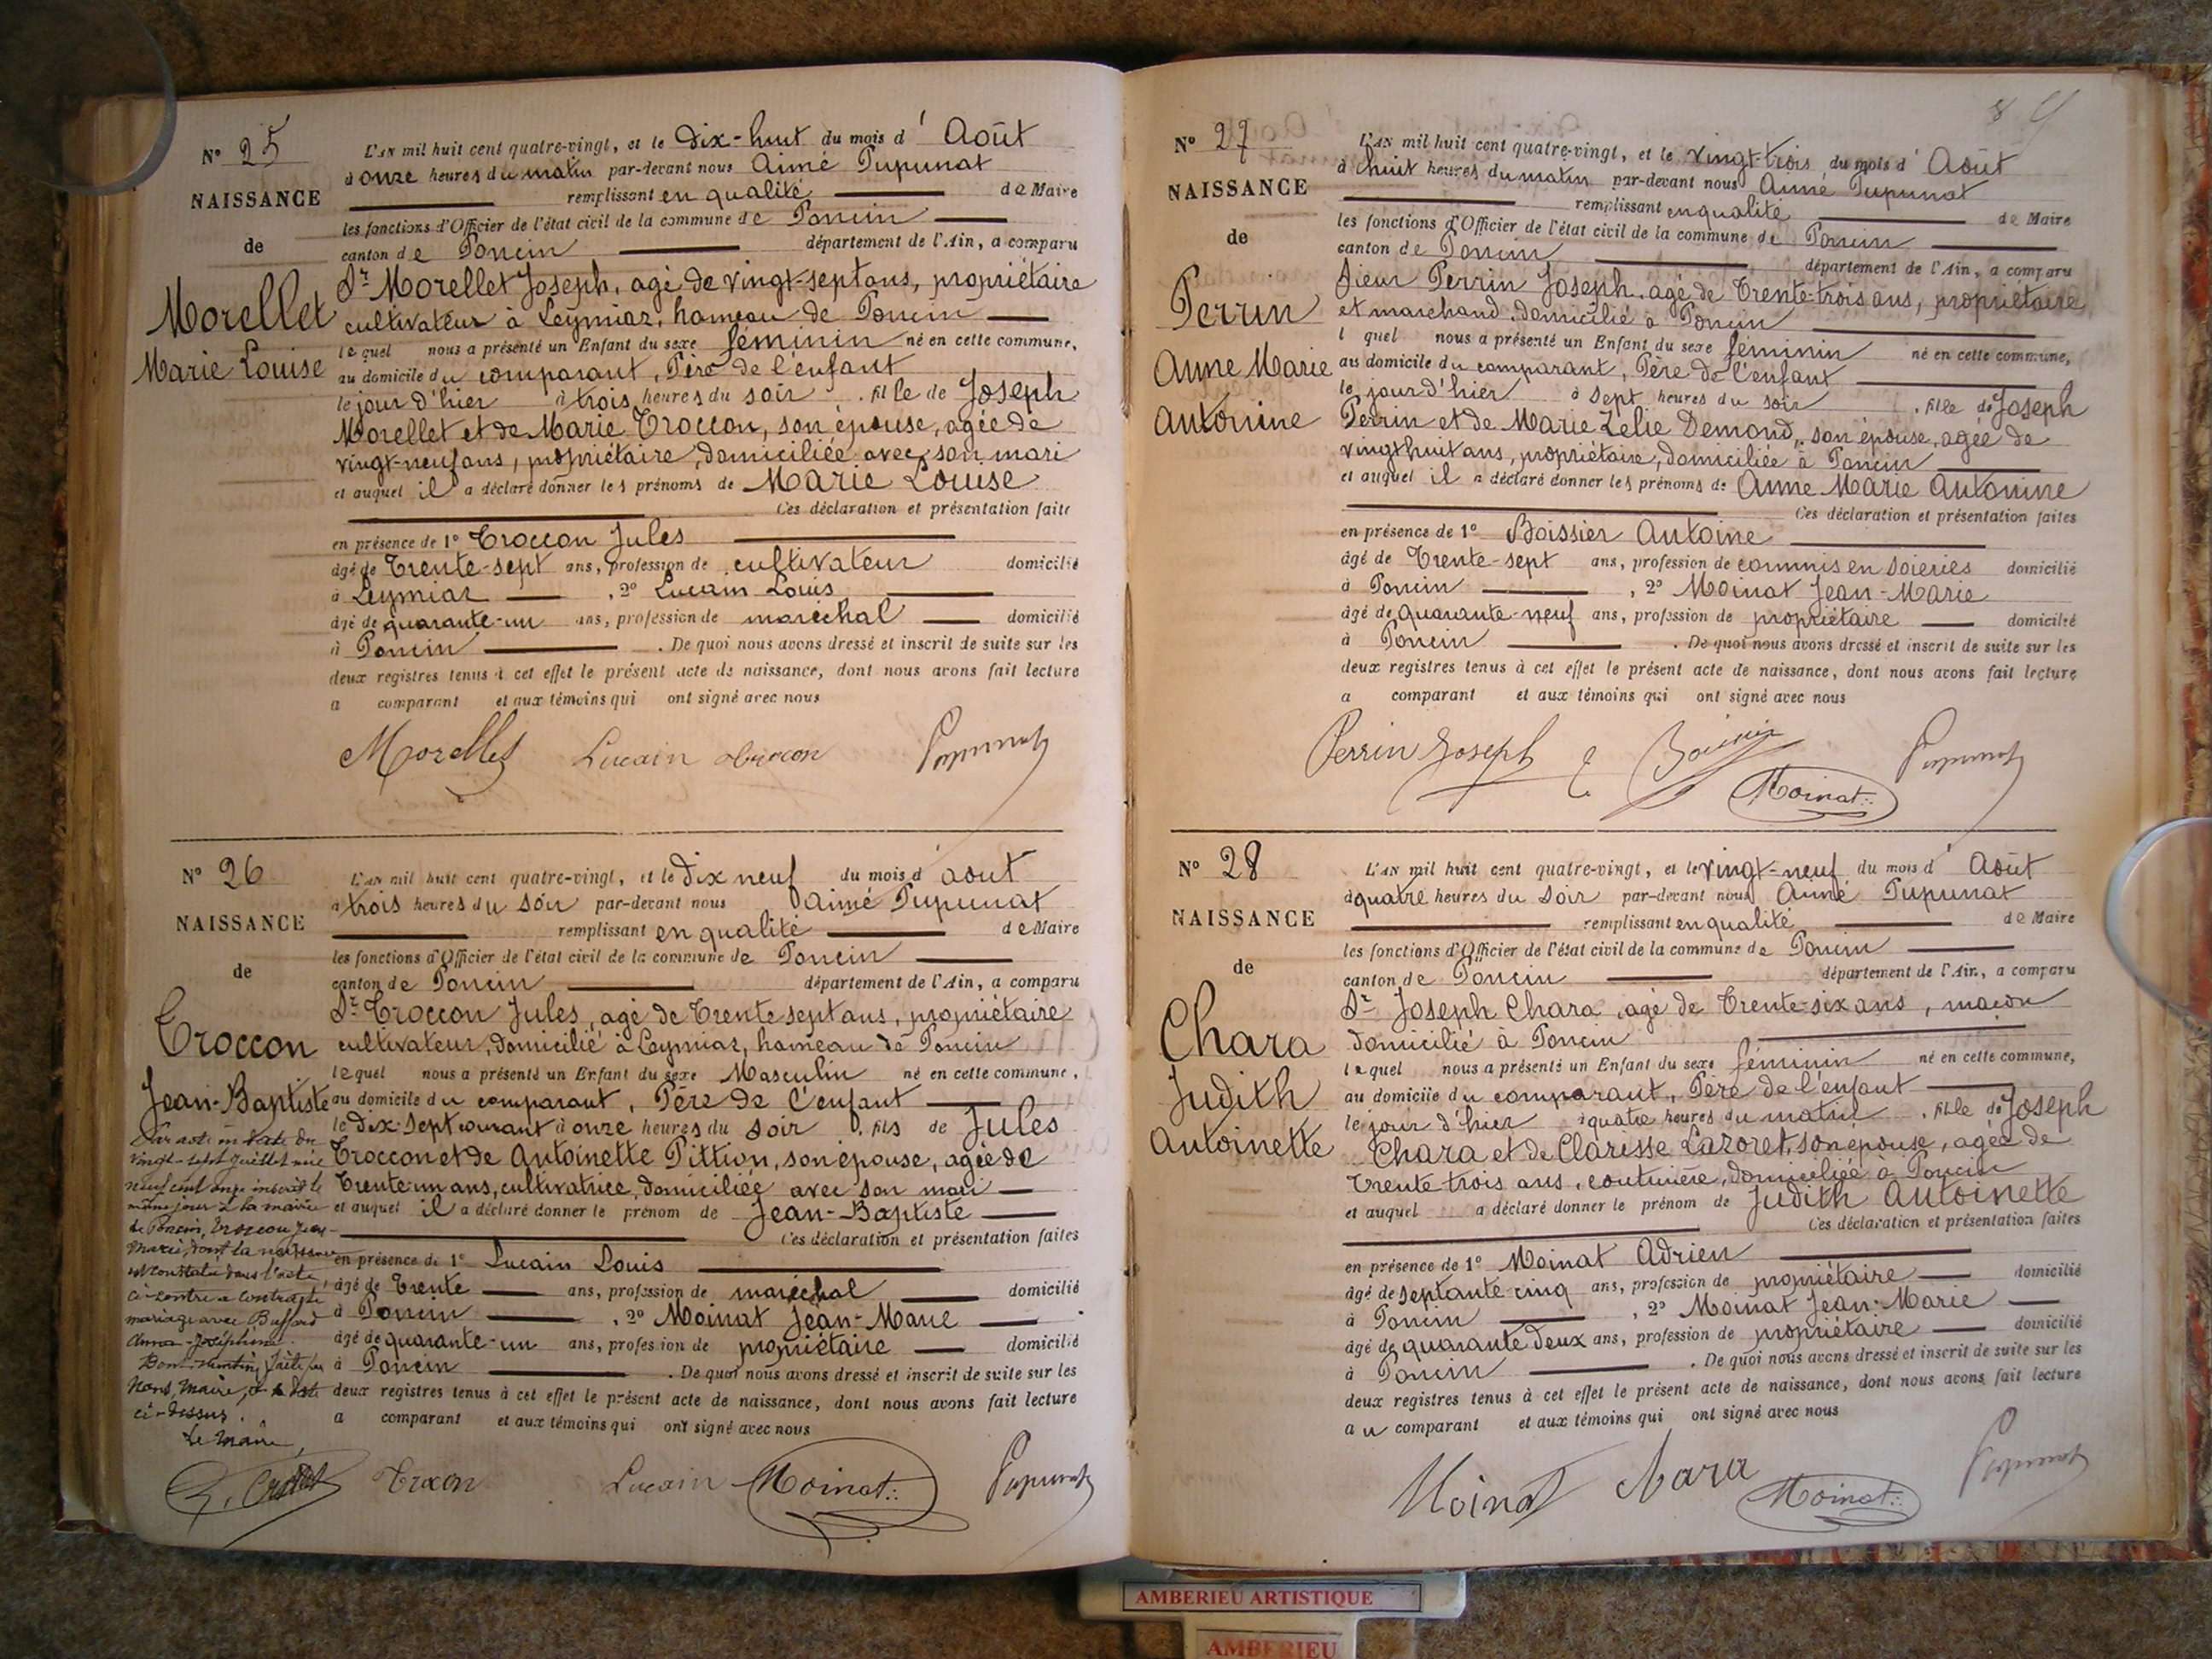 N° 25
NAISSANCE
de
Morellet
Marie Louise
L'AN mil huit cent quatre-vingt, et le Dix-huit du mois d' Août
à onze heures du matin par-devant nous Aimé Pupunat
remplissant en qualité de Maire
les fonctions d'Officier de l'état civil de la commune de Poncin
canton de Poncin département de l'Ain, a comparu
Sr Morellet Joseph, agé de vingt-sept ans, propriétaire
cultivateur à Leymiaz, hameau de Poncin
lequel nous a présenté un Enfant du sexe féminin né en cette commune,
au domicile du comparant, Père de l'enfant
le jour d'hier à trois heures du soir . fille de Joseph
Morellet et de Marie Troccon, son épouse, agée de
vingt-neuf ans, propriétaire, domiciliée avec son mari
et auquel il a déclaré donner les prénoms de Marie Louise
Ces déclaration et présentation faites
en présence de 1° Troccon Jules
âgé de Trente-sept ans, profession de cultivateur domicilié
à Leymiaz , 2° Lucain Louis
âgé de quarante-un ans, profession de maréchal domicilié
à Poncin . De quoi nous avons dressé et inscrit de suite sur les
deux registres tenus à cet effet le présent acte de naissance, dont nous avons fait lecture
a comparant et aux témoins qui ont signé avec nous
Morellet Lucain Troccon Pupunat
N° 26
NAISSANCE
de
Troccon
Jean-Baptiste
L'AN mil huit cent quatre-vingt, et le Dix neuf du mois d' aout
à trois heures du soir par-devant nous aimé Pupunat
remplissant en qualité de Maire
les fonctions d'Officier de l'état civil de la commune de Poncin
canton de Poncin département de l'Ain, a comparu
Sr Troccon Jules, agé de Trente sept ans, propriétaire
cultivateur, domicilié à Leymiaz, hameau de Poncin
lequel nous a présenté un Enfant du sexe Masculin né en cette commune,
au domicile du comparant, Père de l'enfant
le Dix-Sept courant à onze heures du soir . fils de Jules
Troccon et de Antoinette Pittion, son épouse, agée de
Trente un ans, cultivatrice, domiciliée avec son mari
et auquel il a déclaré donner le prénom de Jean-Baptiste
Ces déclaration et présentation faites
en présence de 1° Lucain Louis
âgé de Trente ans, profession de maréchal domicilié
à Poncin , 2° Moinat Jean-Marie
âgé de quarante-un ans, profession de propriétaire domicilié
à Poncin . De quoi nous avons dressé et inscrit de suite sur les
deux registres tenus à cet effet le présent acte de naissance, dont nous avons fait lecture
a comparant et aux témoins qui ont signé avec nous
Par acte en date du
vingt-sept Juillet mil
neuf cent onze inscrit le
même jour à la mairie
de Poncin, Troccon Jean-
Marie, dont la naissance
est constatée dans l'acte
ci-contre a contracté
mariage avec Buffard
Anna-Joséphine.
Dont mention faite par
Nous, Maire, à la date
ci-dessus.
Le Maire,
Troccon Lucain Moinat Pupunat
N° 27
NAISSANCE
de
Perrin
Anne Marie
Antonine
L'AN mil huit cent quatre-vingt, et le vingt-trois du mois d' Août
à huit heures du matin par-devant nous Aimé Pupunat
remplissant en qualité de Maire
les fonctions d'Officier de l'état civil de la commune de Poncin
canton de Poncin département de l'Ain, a comparu
Sieur Perrin Joseph, agé de Trente-trois ans, propriétaire
et marchand, domicilié à Poncin
l quel nous a présenté un Enfant du sexe féminin né en cette commune,
au domicile du comparant, Père de l'enfant
le jour d'hier à sept heures du soir , fille de Joseph
Perrin et de Marie Zelie Demond, son épouse, agée de
vingt huit ans, propriétaire, domiciliée à Poncin
et auquel il a déclaré donner les prénoms de Anne Marie Antonine
Ces déclaration et présentation faites
en présence de 1° Boissier Antoine
âgé de Trente-sept ans, profession de commis en soieries domicilié
à Poncin , 2° Moinat Jean-Marie
âgé de quarante-neuf ans, profession de propriétaire domicilié
à Poncin . De quoi nous avons dressé et inscrit de suite sur les
deux registres tenus à cet effet le présent acte de naissance, dont nous avons fait lecture
a comparant et aux témoins qui ont signé avec nous
Perrin Joseph Boissier Moinat Pupunat
N° 28
NAISSANCE
de
Chara
Judith
Antoinette
L'AN mil huit cent quatre-vingt, et le vingt-neuf du mois d' Août
à quatre heures du soir par-devant nous Aimé Pupunat
remplissant en qualité de Maire
les fonctions d'Officier de l'état civil de la commune de Poncin
canton de Poncin département de l'Ain, a comparu
Sr Joseph Chara, agé de Trente-six ans, maçon
domicilié à Poncin
lequel nous a présenté un Enfant du sexe féminin né en cette commune,
au domicile du comparant, Père de l'enfant
le jour d'hier à quatre heures du matin , fille de Joseph
Chara et de Clarisse Lazoret, son épouse, agée de
Trente trois ans, couturière, domiciliée à Poncin
et auquel a déclaré donner le prénom de Judith Antoinette
Ces déclaration et présentation faites
en présence de 1° Moinat Adrien
âgé de septante cinq ans, profession de propriétaire domicilié
à Poncin , 2° Moinat Jean-Marie
âgé de quarante deux ans, profession de propriétaire domicilié
à Poncin . De quoi nous avons dressé et inscrit de suite sur les
deux registres tenus à cet effet le présent acte de naissance, dont nous avons fait lecture
au comparant et aux témoins qui ont signé avec nous
Moinat Chara Moinat Pupunat
AMBERIEU ARTISTIQUE
AMBERIEU